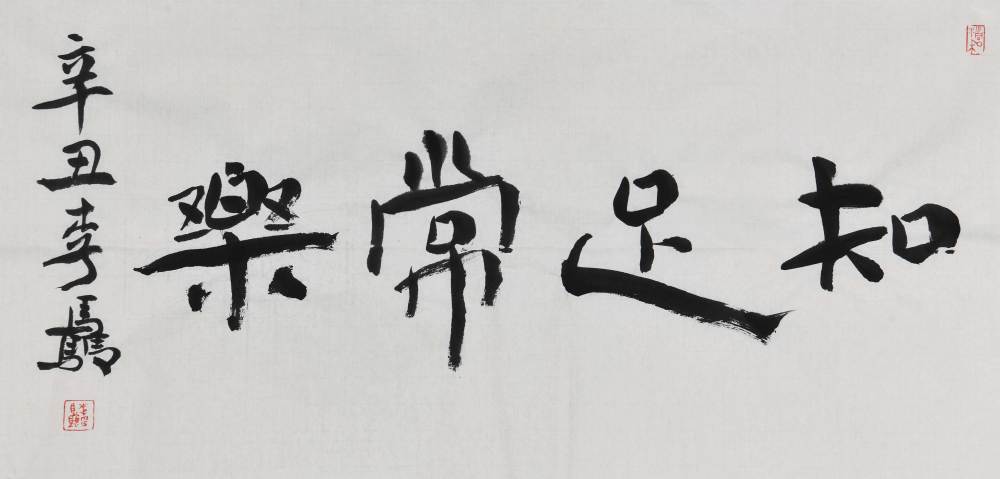 知足常樂
辛丑李驫